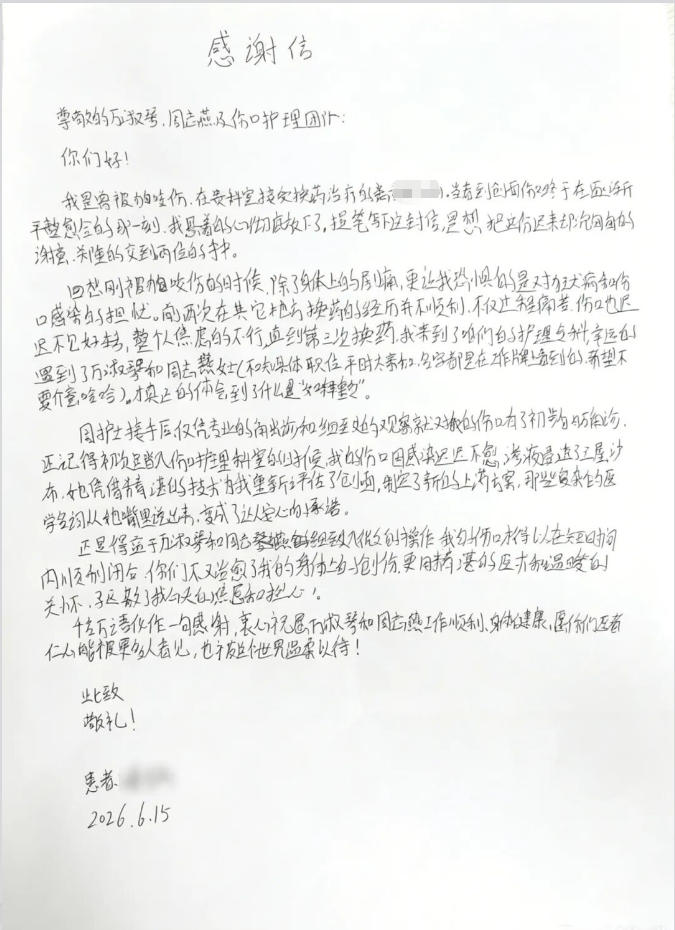 感谢信
尊敬的万淑琴、周志燕及伤口护理团队:
你们好!
我是曾被狗咬伤,在贵科室接受换药治疗的患 。当看到创面伤口终于在逐渐
平整愈合的那一刻,我悬着的心彻底放下了,提笔写下这封信,是想把这份迟来却沉甸甸的
谢意,郑重的交到两位的手中。
回想刚被狗咬伤的时候,除了身体上的剧痛,更让我恐惧的是对狂犬病和伤
口感染的担忧。前两次在其它地方换药的经历并不顺利,不仅过程痛苦,伤口也迟
迟不见好转,整个人焦虑的不行,直到第三次换药,我来到了咱们的护理专科,幸运的
遇到了万淑琴和周志燕女士(不知具体职位,平时大家忙,名字都是在工作牌上看到的,希望不
要介意哈哈)。才真正的体会到了什么是“如释重负”。
周护士接手后,仅凭专业的 和细致的观察就对我的伤口有了初步的 诊,
还记得初次踏入伤口护理科室的时候,我的伤口因感染迟迟不愈,渗液浸透了三层纱
布,她凭借精湛的技术为我重新评估了创面,制定了新的上药方案,那些复杂的医
学名词从她嘴里说出来,变成了让人安心的承诺。
正是得益于万淑琴和周志燕的细致入微的操作,我的伤口才得以在短时间
内顺利闭合,你们不仅治愈了我的身体上的创伤,更用精湛的医术和温暖的
关怀, 了我 的焦虑和担心。
千言万语化作一句感谢,衷心祝愿万淑琴和周志燕工作顺利、身体健康,愿你们医者
仁心能被更多人看见,也被这个世界温柔以待!
此致
敬礼!
患者:
2026.6.15